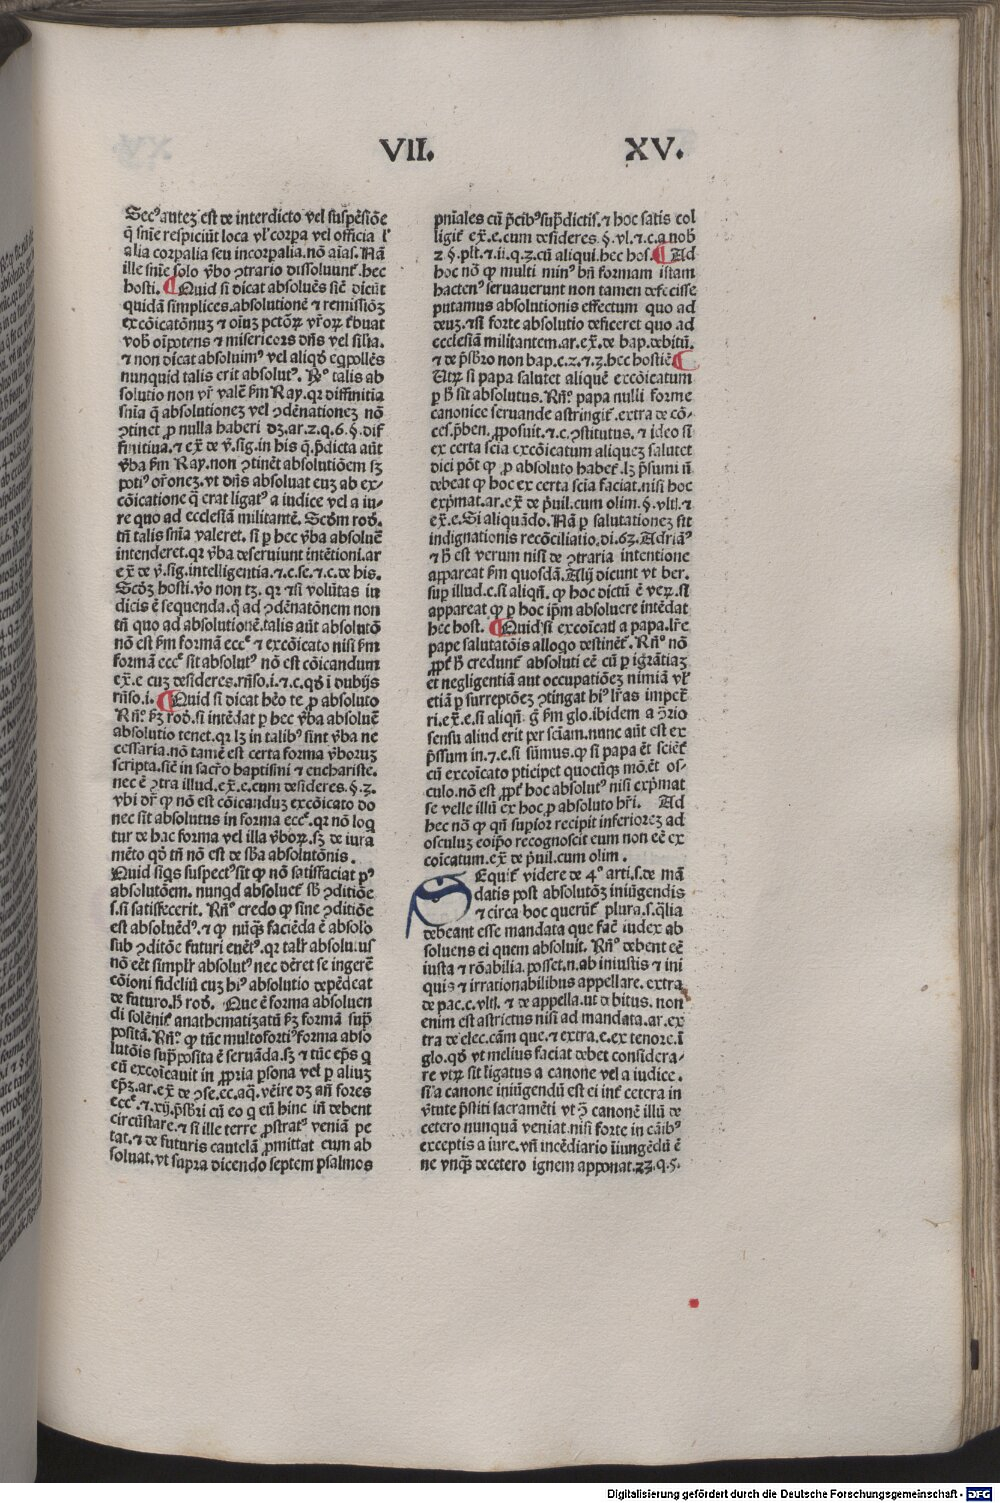 VII. XV.
Secꝰ autez est de interdicto vel suspēsiōe
q̄ sn̄ie respiciūt loca vl' corpa vel officia l'
alia corpalia seu incorpalia.nō aīas. Nā
ille sn̄ie solo ṽbo ꝯtrario dissoluunt᷒.hec
hosti. ¶Quid si dicat absoluēs sic̄ dicūt
quidā simplices.absolutionē ⁊ remissiōꝫ
excōicatōnuꝫ ⁊ oīuꝫ pctōꝝ vr̄oꝝ t̄buat
vob̄ oīpotens ⁊ misericors dn̄s vel si'lia.
⁊ non dicat absoluimꝰ vel aliqd̄ eq̄pollēs
nunquid talis erit absolutꝰ. R̄ꝰ talis ab
solutio non vr̄ valē ẜm Ray.qꝛ diffinitia
sn̄ia q̄ absolutionez vel ꝯdēnationez nō
ꝯtinet ꝓ nulla haberi dꝫ.ar.2.q.6.§.dif
finitiua.⁊ ex̄ de v̄.sig.in his q̄.p̄dicta aūt
ṽba ẜm Ray.non ꝯtinēt absolutiōem sꝫ
potiꝰ or̄onez.vt dn̄s absoluat euꝫ ab ex-
cōicatione q̄ erat ligatꝰ a iudice vel a iu-
re quo ad ecclesiā militantē. Scd̄m rod̄.
tn̄ talis sn̄ia valeret.si p hec ṽba absoluē
intenderet.qꝛ ṽba deseruiunt ītētioni.ar
ex̄ de v̄.sig.intelligentia.⁊.c.se.⁊.c.de his.
Scd̄ꝫ hosti.ṽo non tꝫ. qꝛ ⁊si volūtas in
dicis ē sequenda.q̄ ad ꝯdēnatōnem non
tn̄ quo ad absolutionē.talis aūt absolutō
nō est ẜm formā eccᷓ ⁊ excōicato nisi ẜm
formā eccᷓ sit absolutꝰ nō est cōicandum
ex̄.e cuꝫ desideres.rn̄so.i.⁊.c.qd̄ ī dubijs
rn̄so.i. ¶Quid si dicat hēo te ꝓ absoluto
R̄nꝰ ẜꝫ rod̄.si intēdat p hec ṽba absoluē
absolutio tenet.qꝛ lꝫ in talibꝰ sint ṽba ne
cessaria.nō tamē est certa forma ṽboruꝫ
scripta.sic̄ in sacr̄o baptismi ⁊ euchariste.
nec ē ꝯtra illud.ex̄.e.cum desideres.§.2.
vbi dr̄ ꝙ nō est cōicanduꝫ excōicato do
nec sit absolutus in forma eccᷓ.qꝛ nō loq̄
tur de hac forma vel illa ṽboꝝ.sꝫ de iura
mēto qd̄ tn̄ nō est de sb̄a absolutōnis.
Quid siq̄s suspectꝰ sit ꝙ nō satisfaciat pꝰ
absolutōem.nunqd̄ absoluet᷒ sb̄ ꝯditiōe
s.si satisfecerit. R̄nꝰ credo ꝙ sine ꝯditiōe
est absoluēdꝰ.⁊ ꝙ nūqꝫ faciēda ē absolō
sub ꝯditōe futuri euētꝰ.qꝛ talr̄ absolutus
nō eēt simplr̄ absolutꝰ nec dēret se ingerē
cōioni fideliū cuꝫ hiꝰ absolutio depēdeat
de futuro.h̄ rod̄. Que ē forma absoluen
di solēnit᷒ anathematizatū ẜꝫ formā sup̄
positā. R̄nꝰ ꝙ tūc multofortiꝰ forma abso
lutōis sup̄posita ē seruāda.sꝫ ⁊ tūc ep̄s q̄
eū excoīcauit in ꝓpria psona vel p aliuꝫ
ep̄ꝫ.ar.ex̄ de ꝯse.ec.aq̄.vēire dꝫ an̄ fores
eccᷓ.⁊.xij.p̄sb̄ri cū eo q̄ eū hinc in̄ debent
circūstare.⁊ si ille terre ꝓstratꝰ veniā pe
tat.⁊ de futuris cautelā ꝓmittat cum ab
soluat.vt supra dicendo septem psalmos
pn̄iales cū p̄cibꝰ sup̄dictis.⁊ hoc satis col
ligit᷒ ex̄.e.cum desideres.§.vl.⁊.c.a nob̄
2 §.plt̄.⁊.ii.q.3.cū aliqui.hec hos. ¶Ad
hoc nō ꝙ multi minꝰ bn̄ formam istam
hactenꝰ seruauerunt non tamen defecisse
putamus absolutionis effectum quo ad
deuꝫ.⁊si forte absolutio deficeret quo ad
ecclesiā militantem.ar.ex̄.de bap.debitū.
⁊ de p̄sb̄ro non bap.c.2.⁊.3.hec hostiē ¶
Utꝝ si papa salutet aliquē excōicatum
p h̄ sit absolutus. R̄nꝰ papa nulli forme
canonice seruande astringit᷒.extra de cō-
ces.p̄ben.ꝓposuit.⁊.c.ꝯstitutus.⁊ ideo si
ex certa scia excōicatum aliquez salutet
dici pōt ꝙ ꝓ absoluto habet᷒.lꝫ p̄sumi n̄
debeat ꝙ hoc ex certa scia faciat.nisi hoc
exp̄mat.ar.ex̄ de p̄uil.cum olim.§.vltī.⁊
ex̄.e.Si aliquādo. Nā p salutationez sit
indignationis recōciliatio.di.63.Adriāꝰ
⁊ h̄ est verum nisi de ꝯtraria intentione
appareat ẜm quosdā. Alij dicunt vt ber.
sup̄ illud.c.si aliqn̄. ꝙ hoc dictū ē veꝝ.si
appareat ꝙ p hoc ip̄m absoluere intēdat
hec host. ¶Quid si excoīcati a papa.lr̄e
pape salutatōis alloq̄o destinēt᷒. R̄nꝰ nō
ꝓpt᷒ h̄ credunt᷒ absoluti eē cū p igr̄antiaꝫ
et negligentiā aut occupatiōez nimiā vl'
etiā p surreptōeꝫ ꝯtingat hiꝰ lr̄as impet᷒
ri.ex̄.e.si aliqn̄ ḡ ẜm glo.ibidem a ꝯrio
sensu aliud erit per sciam.nunc aūt est ex
p̄ssum in.⁊.c.si summus.ꝙ si papa ēt scien̄t᷒
cū excoīcato pticipet quocūqꝫ mō.ēt os-
culo.nō est ꝓpt᷒ hoc absolutꝰ nisi exp̄mat
se velle illū ex hoc ꝓ absoluto hr̄i. Ad
hec nō ꝙ qn̄ supior recipit inferiorez ad
osculuꝫ eoip̄o recognoscit eum non eē ex
coīcatum.ex̄ de p̄uil.cum olim.
SEquit᷒ videre de 4ꝰ arti.s.de mā
datis post absolutōꝫ iniūgendis
⁊ circa hoc querūt᷒ plura.s.q̄lia
debeant esse mandata que fac̄ iudex ab
soluens ei quem absoluit. R̄nꝰ debent eē
iusta ⁊ rōabilia.posset.n.ab iniustis ⁊ ini
quis ⁊ irrationabilibus appellare.extra
de pac.c.vltī. ⁊ de appella.ut debitus. non
enim est astrictus nisi ad mandata.ar.ex
tra de elec.cām que.⁊ extra.e.ex tenore.ī
glo.qd̄ vt melius faciat debet considera-
re vtꝝ sit ligatus a canone vel a iudice.
si a canone iniūgendū est ei int᷒ cetera in
ṽtute p̄stiti sacramēti vt ꝯ canonē illū de
cetero nunquā veniat.nisi forte in cāibꝰ
exceptis a iure.vn̄ incēdiario iiungēdū ē
ne vnqꝫ decetero ignem apponat.23.q.5.
Digitalisierung gefördert durch die Deutsche Forschungsgemeinschaft - DFG